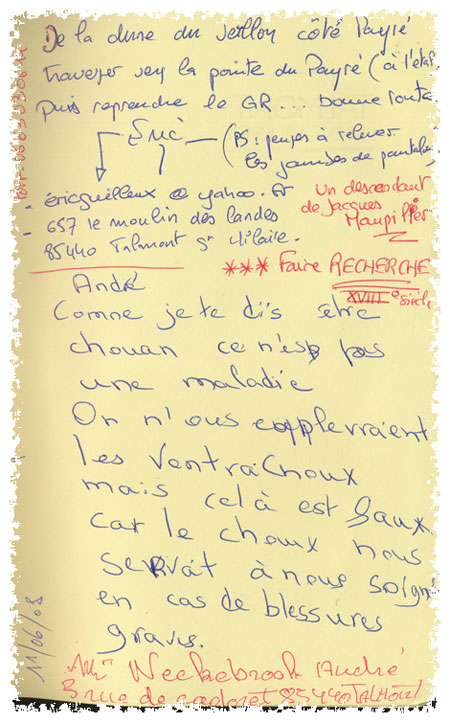 De la dune du Veillon côté Payré
traverser vers la pointe du Payré (à l'étal
puis reprendre le GR... bonne route.
Éric — (PS : pensez à relever
les jambes de pantalon)
- ericguilleux @ yahoo.fr
- 657 le moulin des landes
85440 Talmont St Hilaire.
un descendant
de Jacques
Maupillier
*** Faire RECHERCHE
XVIII e siècle
André
Comme je te dis être
chouan ce n'est pas
une maladie
On n'ous applevraient
les Ventrachoux
mais celà est faux
car le choux nous
servait à nous soigné
en cas de blessures
graves.
11/06/08
André
3 rue de 85440 TALMONT